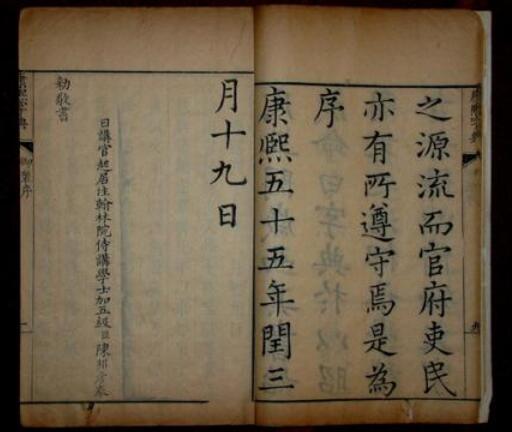 康熙字典
之源流而官府吏民
亦有所遵守焉是為
序
康熙五十五年閏三
月十九日
日講官起居注翰林院侍講學士加五級臣陳邦彥奉
勅敬書
康熙字典
御製序